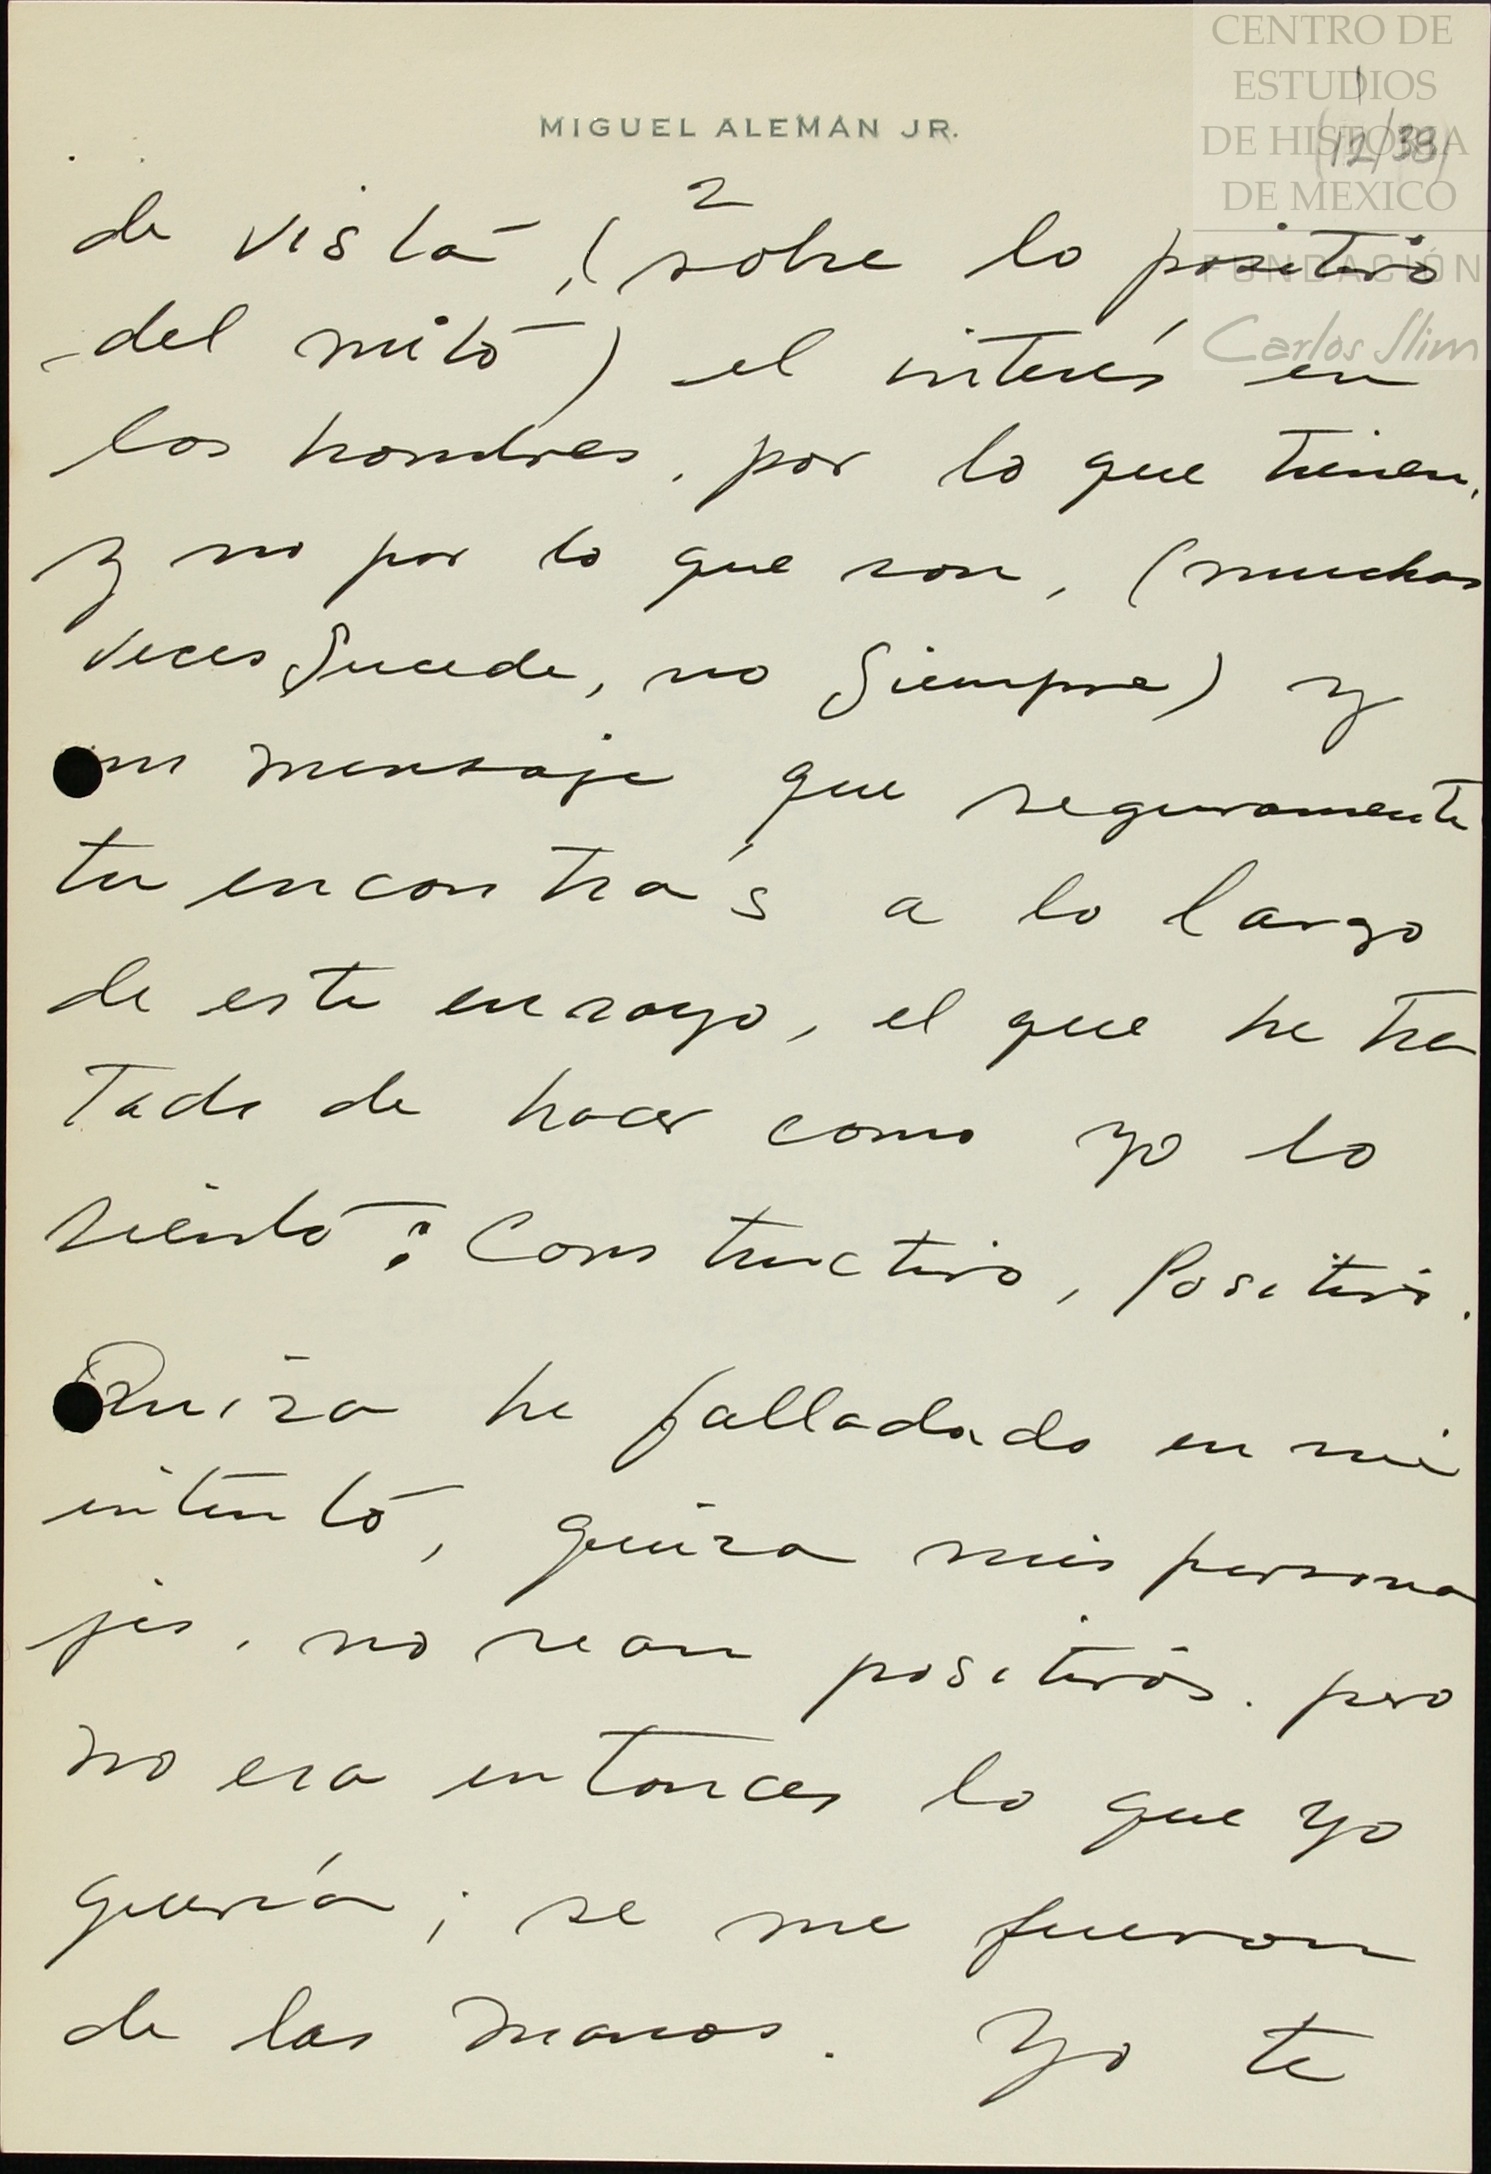 CENTRO DE
ESTUDIOS
DE HISTORIA
DE MEXICO
FUNDACIÓN
Carlos Slim
MIGUEL ALEMAN JR.
(12/39)
2
de vista, (sobre lo positivo
del mito) el interés en
los hombres, por lo que tienen,
y no por lo que son, (muchas
veces sucede, no siempre) y
un mensaje que seguramente
tu encontrás a lo largo
de este ensayo, el que he tra
tado de hacer como yo lo
siento: Constructivo, Positivo.
Quiza he falladado en mi
intento, quiza mis persona
jes, no sean positivos. pero
no era entonces lo que yo
quería; se me fueron
de las manos. Yo te